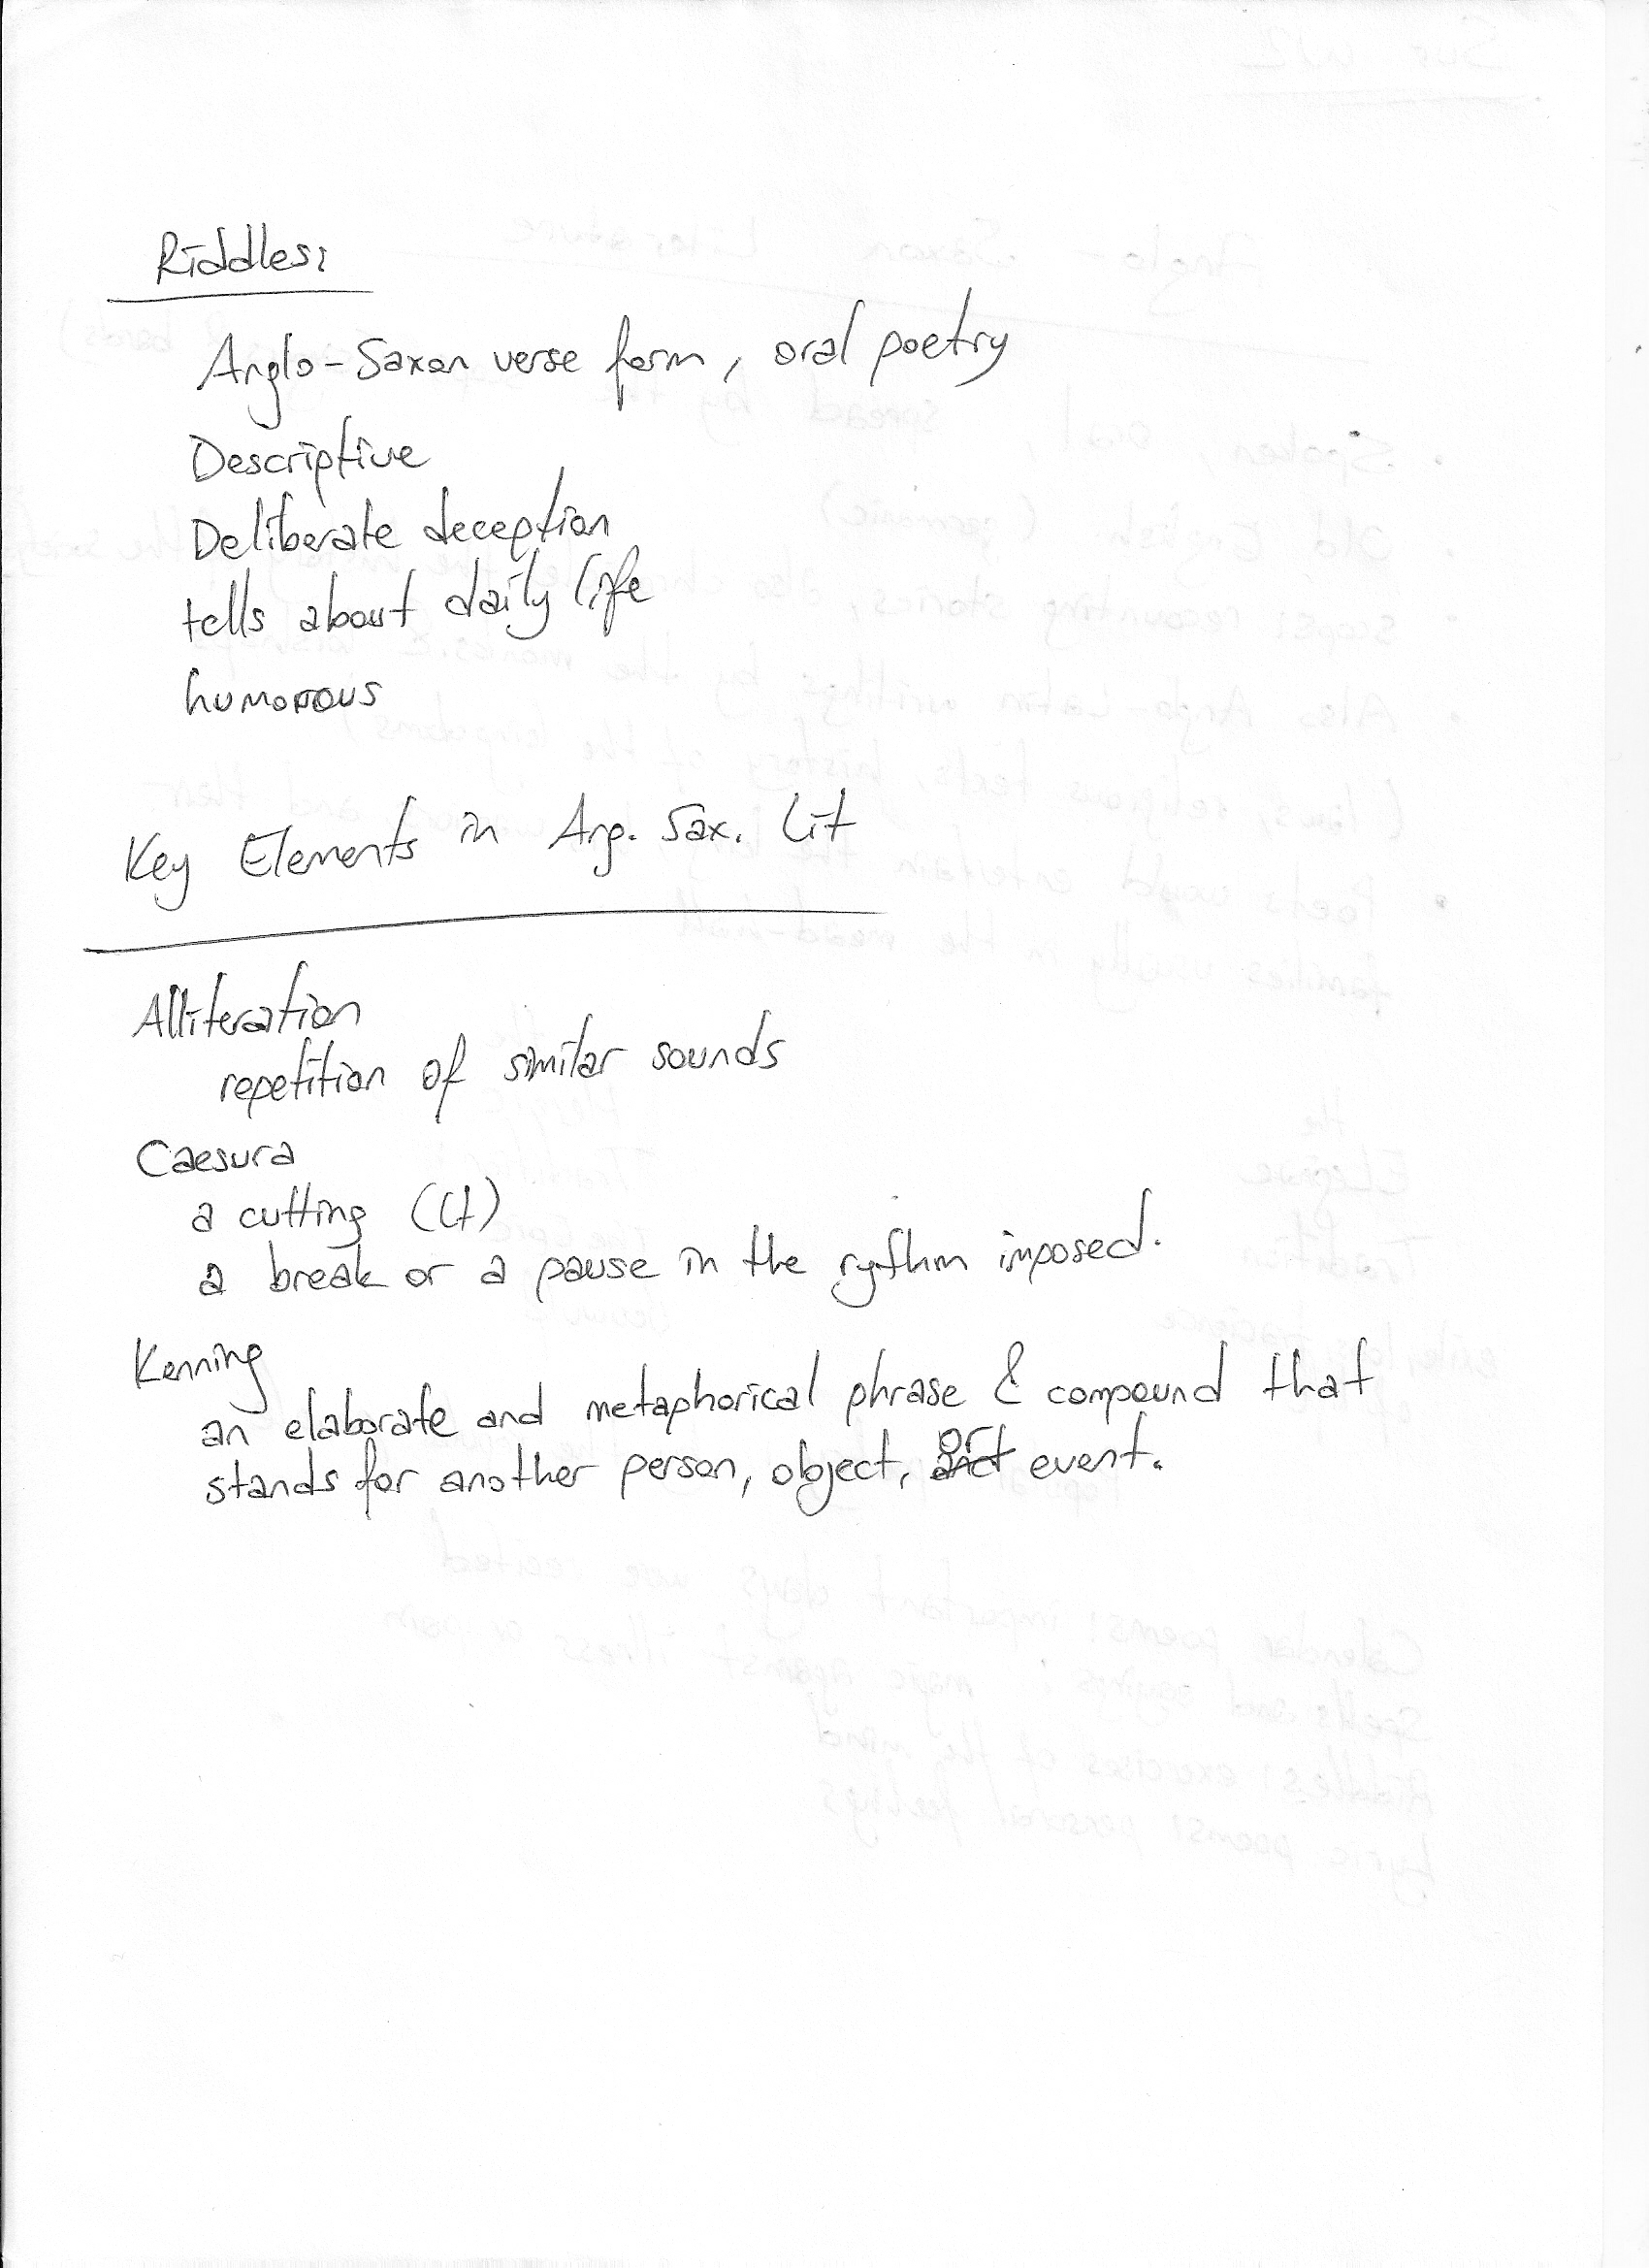 Riddles:
Anglo-Saxon verse form, oral poetry
Descriptive
Deliberate deception
tells about daily life
humorous
Key Elements in Ang. Sax. Lit
Alliteration
repetition of similar sounds
Caesura
a cutting
a break or a pause in the rythm imposed.
Kenning
an elaborate and metaphorical phrase & compound that
stands for another person, object, or event.